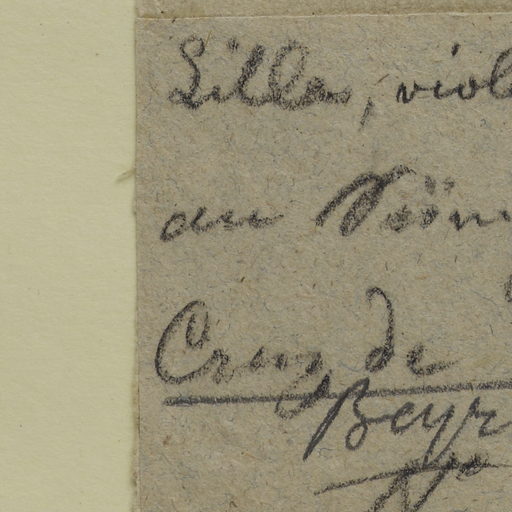 Lilla, viol
an
Cruz de
Beyr